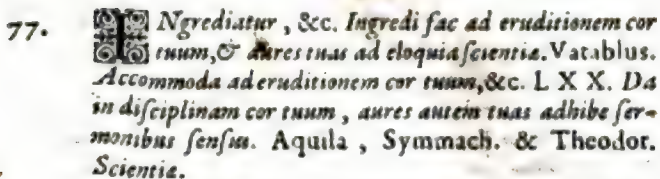 77. INgrediatur, &c. Ingredi fac ad eruditionem cor
tuum, & aures tuas ad eloquia scientiæ. Vatablus.
Accommoda ad eruditionem cor tuum, &c. LXX. Da
in disciplinam cor tuum, aures autem tuas adhibe ser-
monibus sensus. Aquila, Symmach. & Theodor.
Scientiæ.